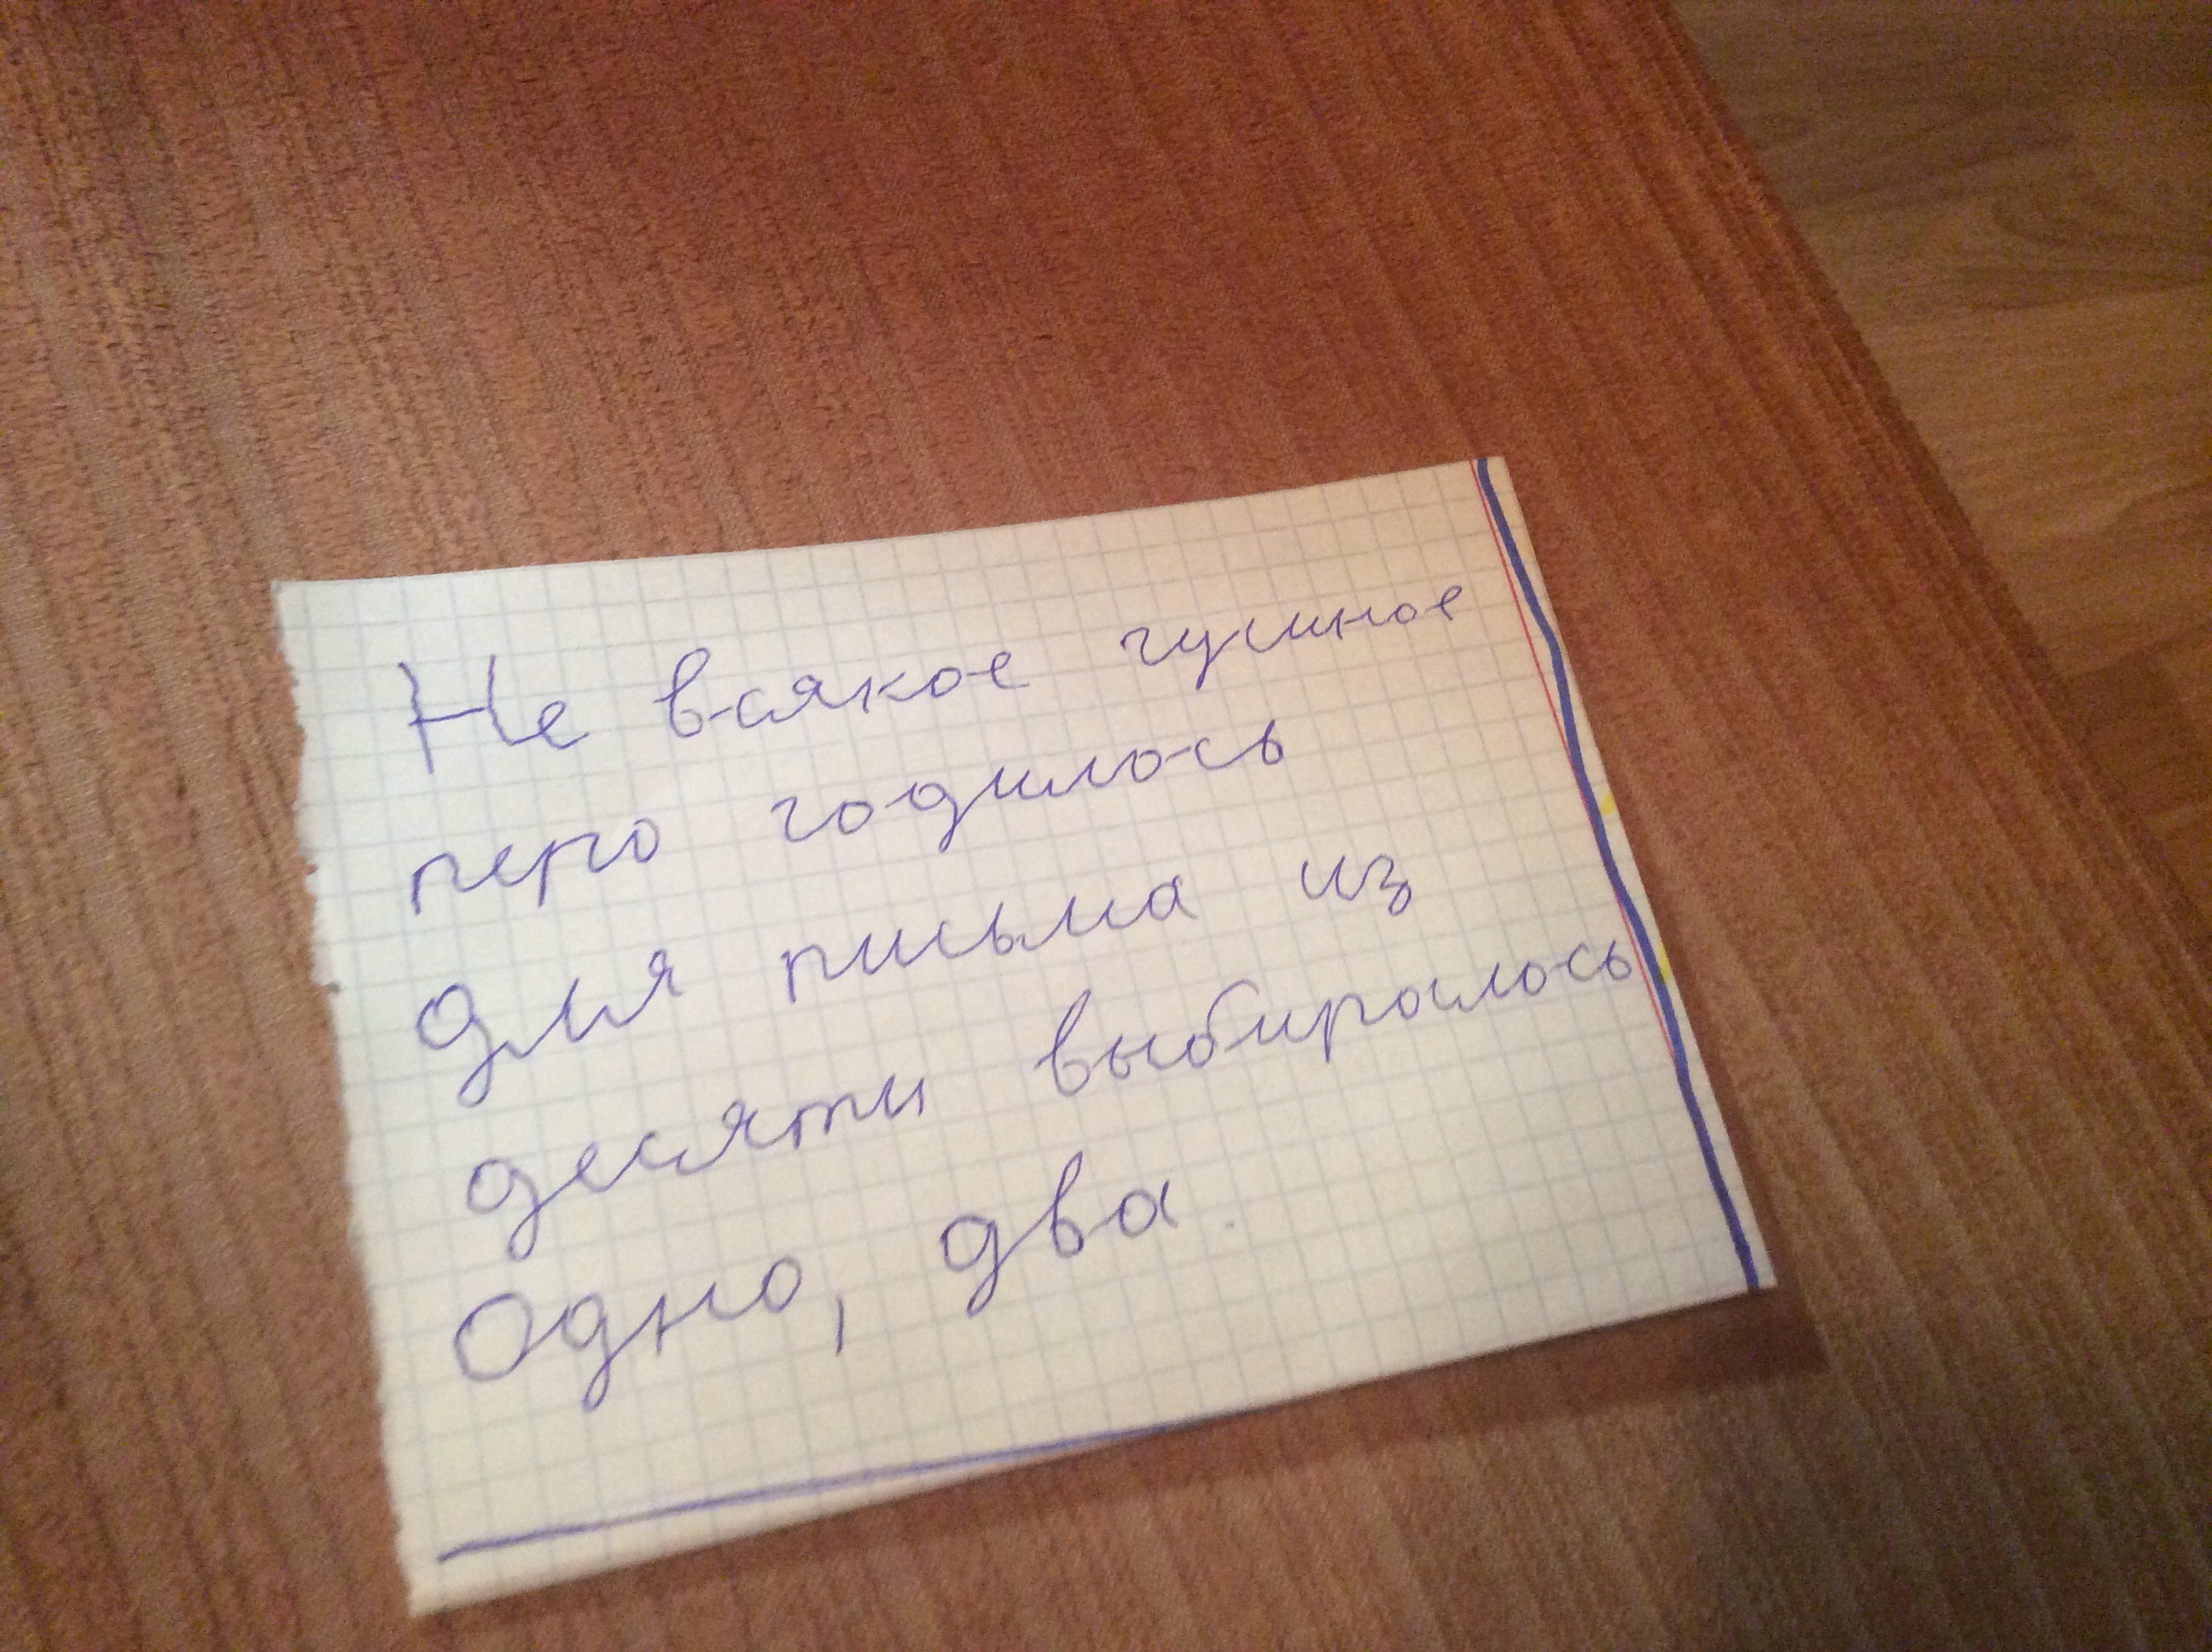 Не всякое гусиное
перо годилось
для письма из
десяти выбиралось
Одно, два.